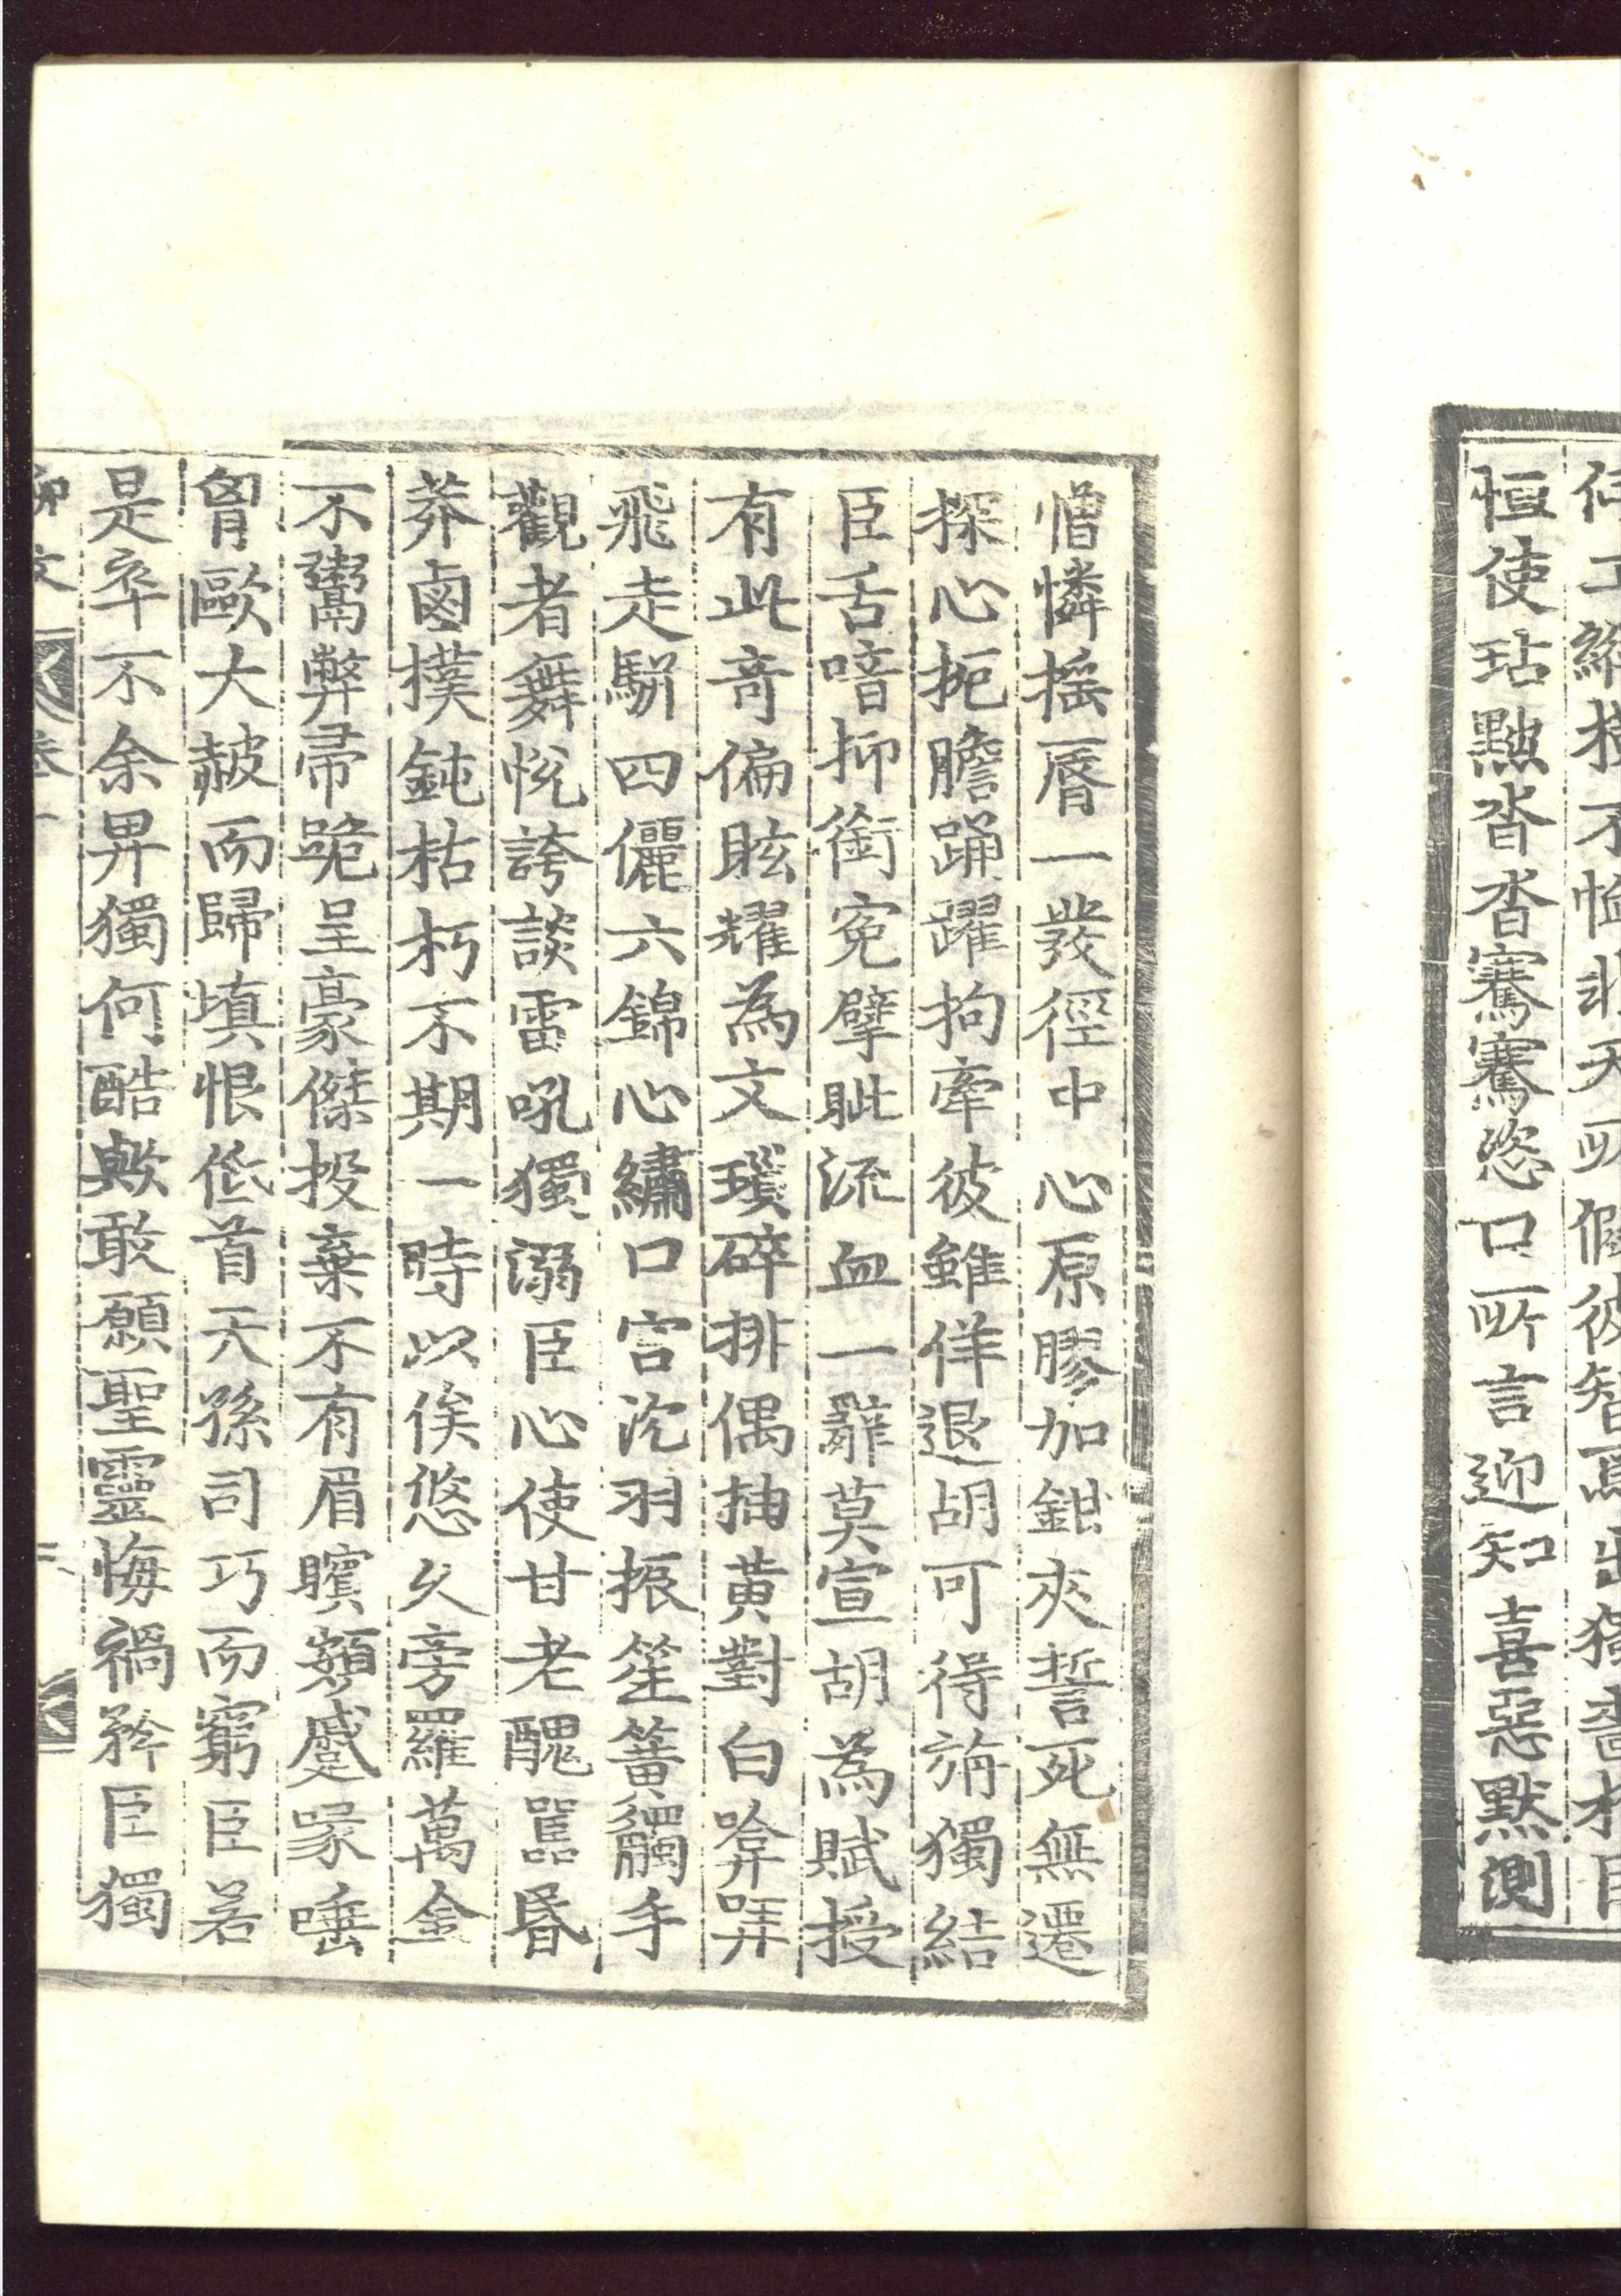 恒使玷黜沓沓騫騫恣口所言迎知喜惡默測
憎憐揺唇一發徑中心原膠加鉗夾誓死無遷
探心扼膽踊躍拘牽彼雖佯退胡可得旃獨結
臣舌喑抑銜寃擘眦流血一辭莫宣胡為賦授
有此竒偏眩耀為文瑣碎排偶抽黄對白啽哢
飛走駢四儷六錦心繡口宫沉羽振笙簧觸手
觀者舞悦誇談雷吼獨溺臣心使甘老醜嚚昏
莽鹵撲鈍枯朽不期一時以俟悠久旁羅萬金
不鬻弊帚跪呈豪傑投棄不有眉矉頞蹙喙唾
胷歐大赧而歸塡恨低首天孫司巧而窮臣若
是卒不余畀獨何酷歟敢願聖靈悔禍矜臣獨